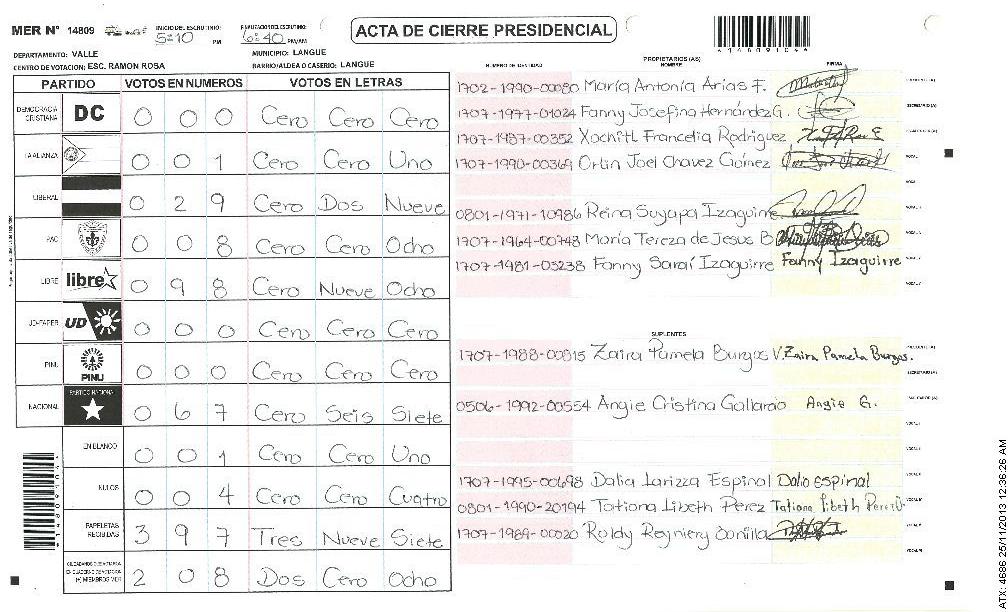 MER Nº 14809 INICIO DEL ESCRUTINIO: 5:10 PM FINALIZACION DEL ESCRUTINIO: 6:40 PM/AM
ACTA DE CIERRE PRESIDENCIAL
DEPARTAMENTO: VALLE MUNICIPIO: LANGUE
CENTRO DE VOTACION: ESC. RAMON ROSA BARRIO/ALDEA O CASERIO: LANGUE
PARTIDO VOTOS EN NUMEROS VOTOS EN LETRAS
DEMOCRACIA CRISTIANA DC 0 0 0 Cero Cero Cero
LA ALIANZA 0 0 1 Cero Cero Uno
LIBERAL 0 2 9 Cero Dos Nueve
PAC 0 0 8 Cero Cero Ocho
LIBRE libre 0 9 8 Cero Nueve Ocho
UD-FAPER UD 0 0 0 Cero Cero Cero
PINU PINU 0 0 0 Cero Cero Cero
NACIONAL PARTIDO NACIONAL 0 6 7 Cero Seis Siete
EN BLANCO 0 0 1 Cero Cero Uno
NULOS 0 0 4 Cero Cero Cuatro
PAPELETAS RECIBIDAS 3 9 7 Tres Nueve Siete
2 0 8 Dos Cero Ocho
PROPIETARIOS (AS)
NUMERO DE IDENTIDAD NOMBRE FIRMA
1702-1990-00080 María Antonía Arias F.
1707-1977-01024 Fanny Josefina Hernández G.
1707-1987-00352 Xochitl Francelia Rodriguez
1707-1990-00369 Orlin Joel Chavez Gómez
0801-1971-10986 Reina Suyapa Izaguirre
1707-1964-00748 María Tereza de Jesus B
1707-1981-03238 Fanny Saraí Izaguirre Fanny Izaguirre
SUPLENTES
1707-1988-00815 Zaira Pamela Burgos V. Zaira Pamela Burgos.
0506-1992-00554 Angie Cristina Gallardo Angie G.
1707-1995-00698 Dalia Larizza Espinal Dalia espinal
0801-1990-20194 Tatiana Libeth Perez Tatiana libeth Perez
1707-1989-00020 Roldy Reyniery Bonilla
ATX: 4686 25/11/2013 12:36:26 AM